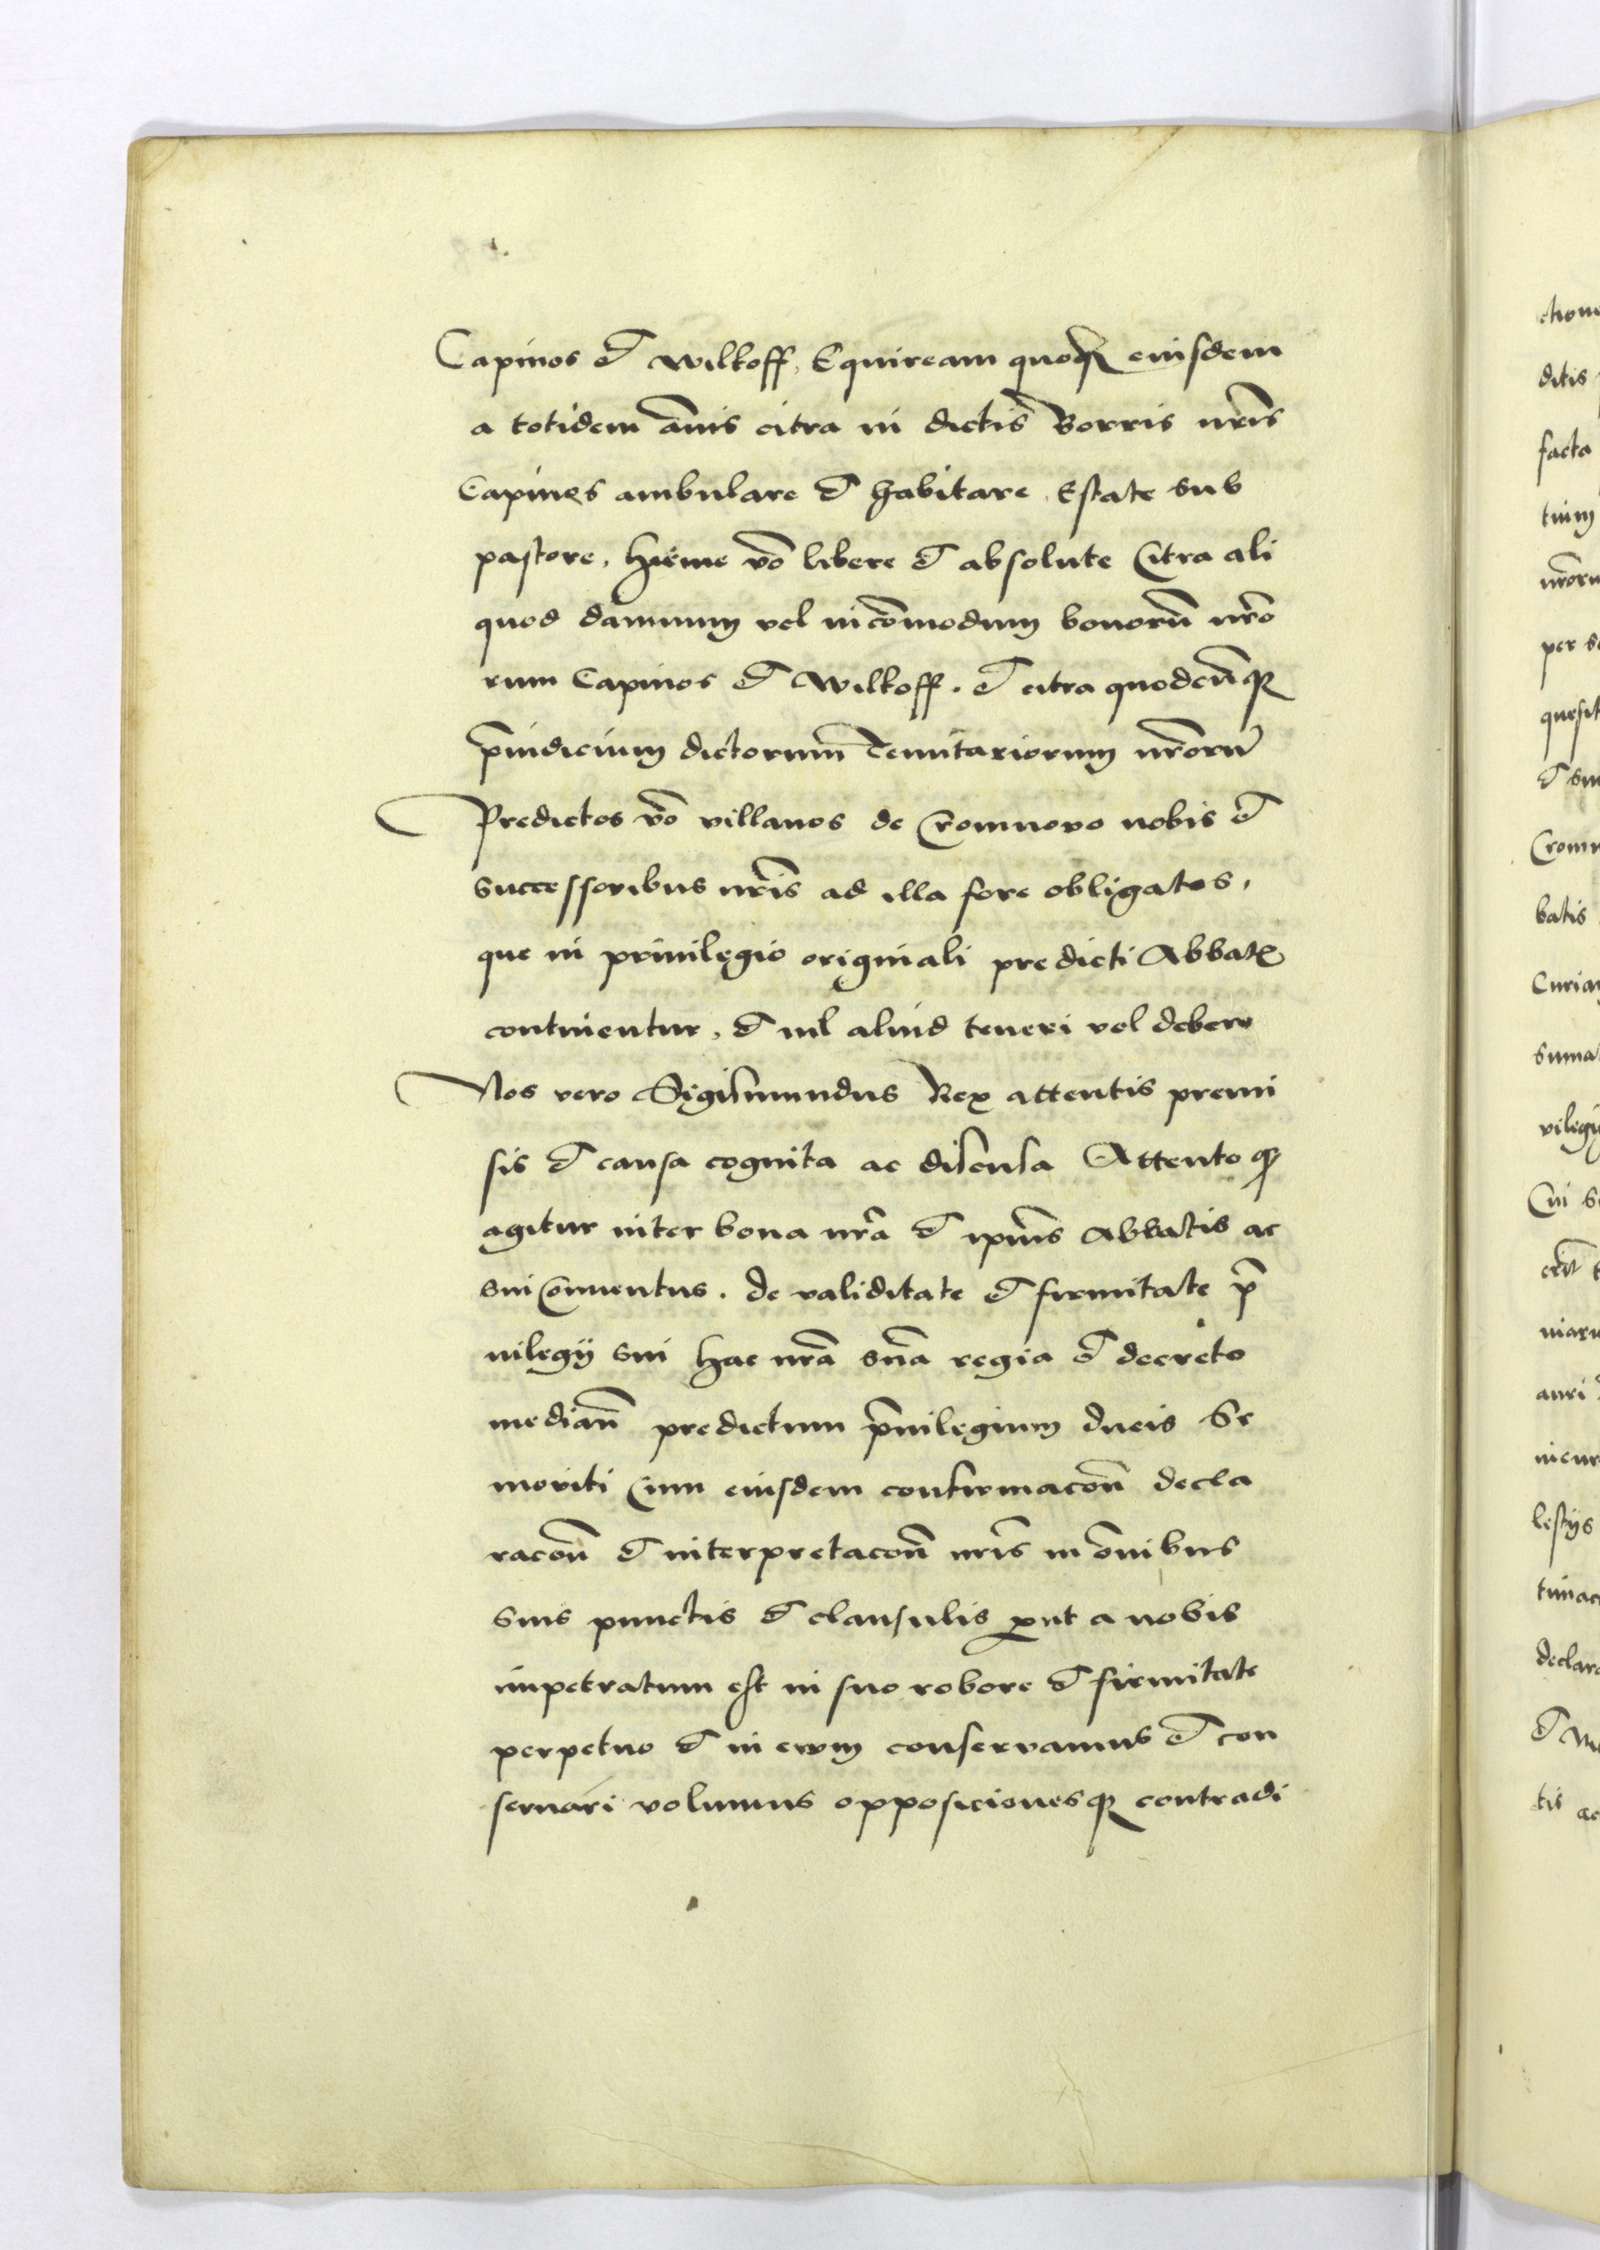 Capinos et Wilkoff, Equiream quoq eiusdem
a totidem ānis citra in dictis Borris nr̄is
Capinos ambulare et habitare, Estate sub
pastore, hieme vo libere et absolute Citra ali
quod damnum vel incōmodum bonorū nr̄o
rum Capinos et Wilkoff. et citra quodcūq
p̄iudicium dictorum Tenutariorum nr̄orū
Predictos vo villanos de Cromnovo nobis et
successoribus nr̄is ad illa fore obligatos,
que in privilegio originali predicti Abbatis
continentur, et nil aliud teneri vel debere
Nos vero Sigismundus Rex attentis premi
sis et causa cognita ac discussa Attento q
agitur inter bona nr̄a et ipius Abbatis ac
sui Conventus. de validitate et firmitate p̄
uilegij sui hac nr̄a sn̄a regia et decreto
mediān predictum p̄uilegium ducis Se
moviti Cum eiusdem confirmacōn decla
racōn et interpretacōn nr̄is in om̄ibus
suis punctis et clausulis put a nobis
impetratum est in suo robore et firmitate
perpetuo et in evum conservamus et con
seruari volumus opposicionesq contradi
ditis
facta
nr̄oru
per
batis
tis ac